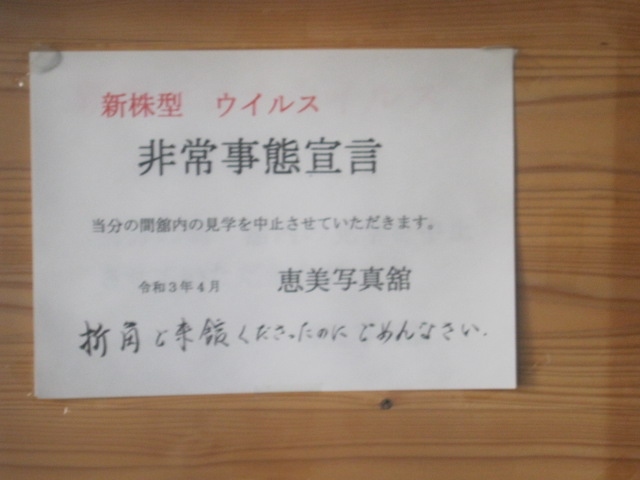 新株型 ウイルス
非常事態宣言
当分の間館内の見学を中止させていただきます。
令和3年4月 恵美写真舘
折角ご来館くださったのにごめんなさい.